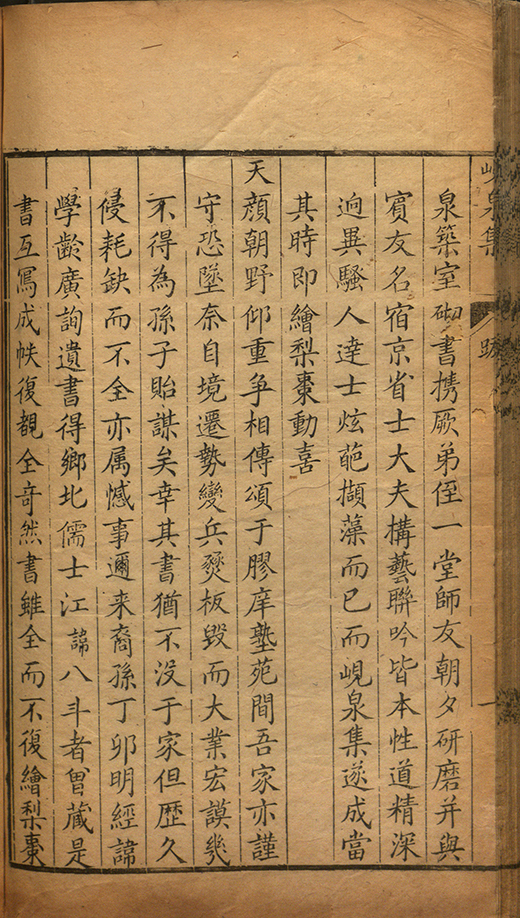 峴泉集 跋 一
泉築室砌書携厥弟侄一堂師友朝夕研磨并與
賓友名宿京省士大夫構藝聯吟皆本性道精深
逈異騷人達士炫葩擷藻而已而峴泉集遂成當
其時即繪梨棗動喜
天顔朝野仰重争相傳頌于膠庠塾苑間吾家亦謹
守恐墜奈自境遷勢變兵燹板毀而大業宏謨幾
不得為孫子貽謀矣幸其書猶不没于家但歴久
侵耗缺而不全亦属憾事邇来裔孫丁卯明經諱
學齡廣詢遺書得鄉北儒士江諱八斗者曾藏是
書互冩成帙復覩全竒然書雖全而不復繪梨棗